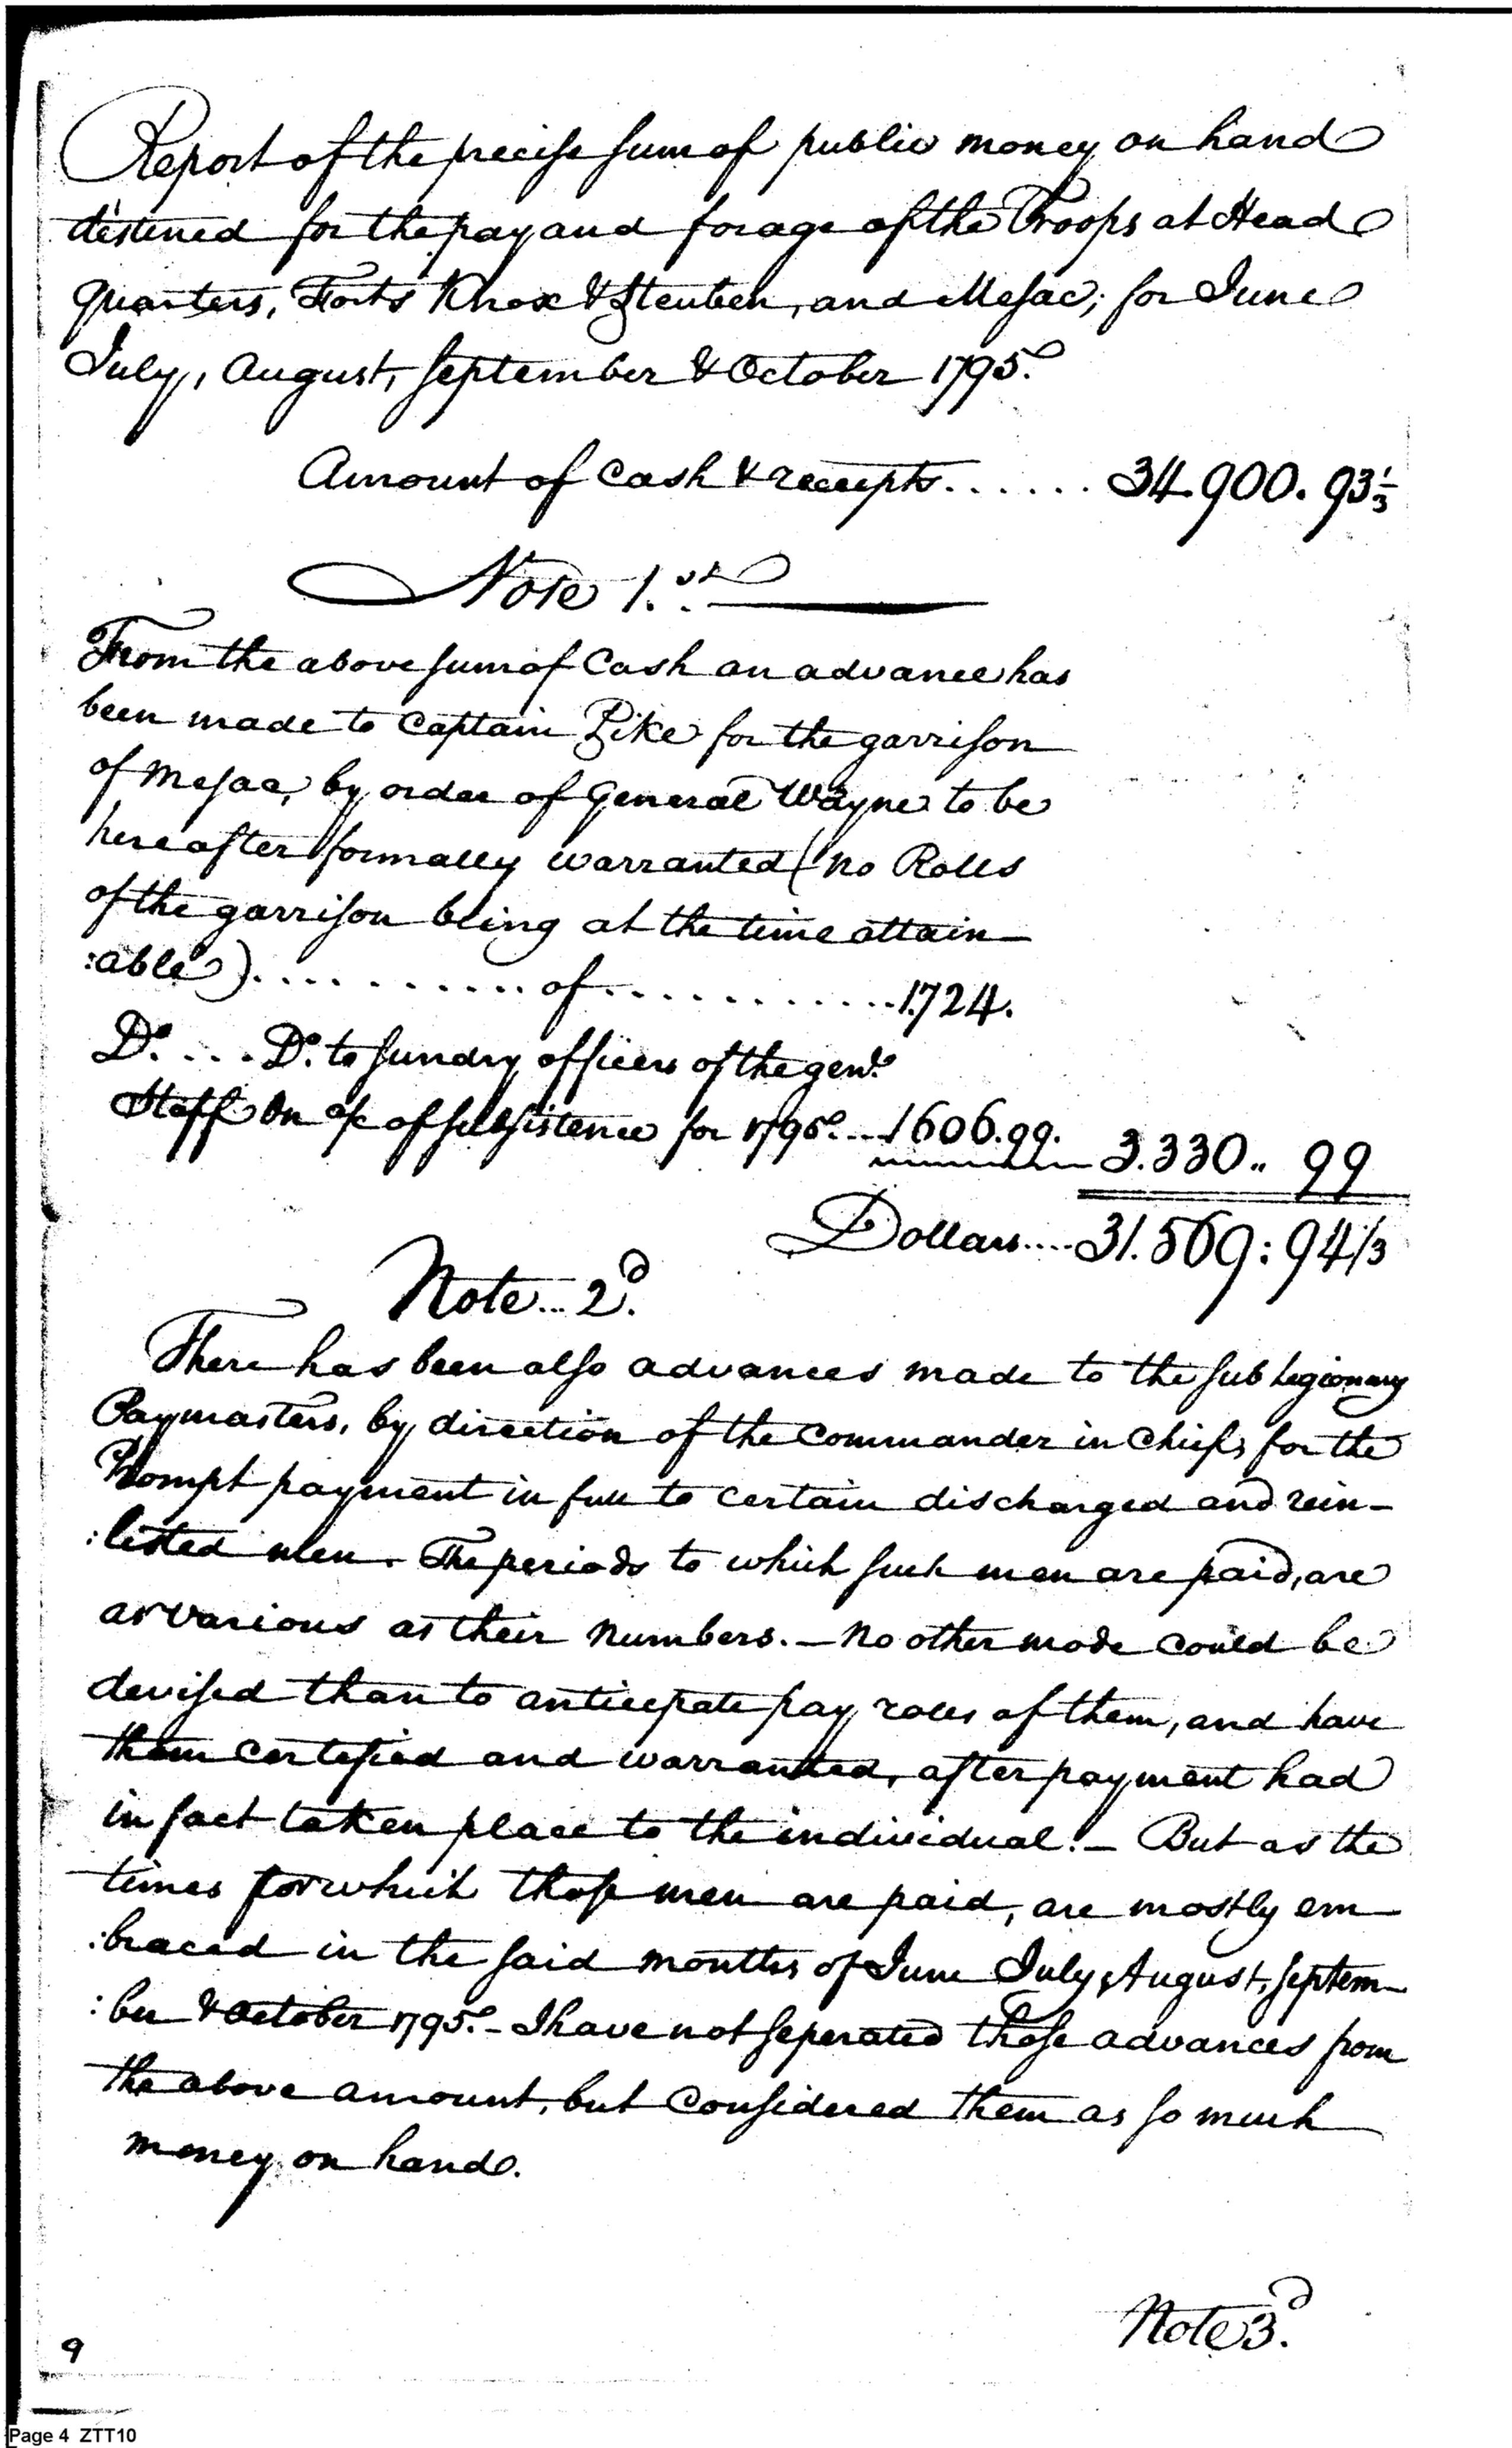 Report of the precise sum of public money on hand
destined for the pay and forage of the Troops at Head
quarters, Forts Knox & Steuben, and Mesac; for June
July, August, September & October 1795.
Amount of Cash & receipts...... 34.900. 93 1/3
Note 1.st
From the above sum of Cash an advance has
been made to Captain Pike for the garrison
of Mesac, by order of General Wayne to be
hereafter formally warranted (no Rolls
of the garrison being at the time attain-
:able).......... of............1.724.
Do. ... Do. to sundry officers of the genl.
Staff on a/c of subsistence for 1795....1606.99. 3.330.. 99
Dollars....31.569: 94 1/3
Note... 2d.
There has been also advances made to the sub legionary
Paymasters, by direction of the Commander in Chief, for the
Prompt payment in full to certain discharged and rein-
:listed men. The periods to which such men are paid, are
as various as their numbers. - no other mode could be
devised than to anticepate pay rolls of them, and have
them certefied and warranted, after payment had
in fact taken place to the individual. - But as the
times for which those men are paid, are mostly em-
:braced in the said months of June July, August, Septem-
:ber & October 1795. - I have not seperated those advances from
the above amount, but considered them as so much
money on hand.
Note 3d.
9
Page 4 ZTT10